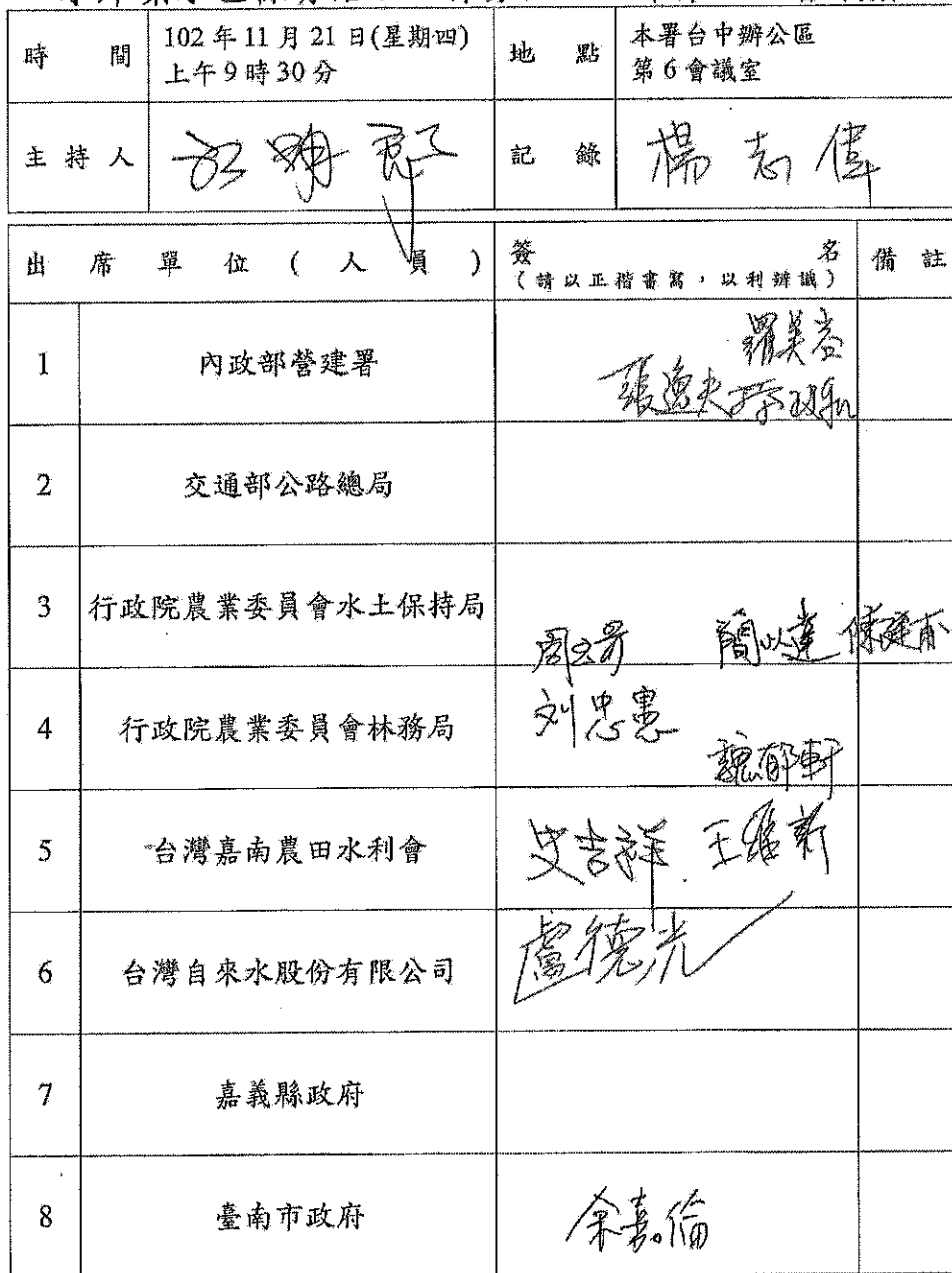 時間 102年11月21日(星期四) 地點 本署台中辦公區
上午9時30分 第6會議室
主持人 記錄 楊志偉
出席單位(人員) 簽名 備註
(請以正楷書寫,以利辨識)
1 內政部營建署 羅美 張逸夫
2 交通部公路總局
3 行政院農業委員會水土保持局 簡以達
4 行政院農業委員會林務局 刘忠憲
魏郁軒
5 台灣嘉南農田水利會 史吉祥 王維新
6 台灣自來水股份有限公司 盧德光
7 嘉義縣政府
8 臺南市政府 余嘉倫